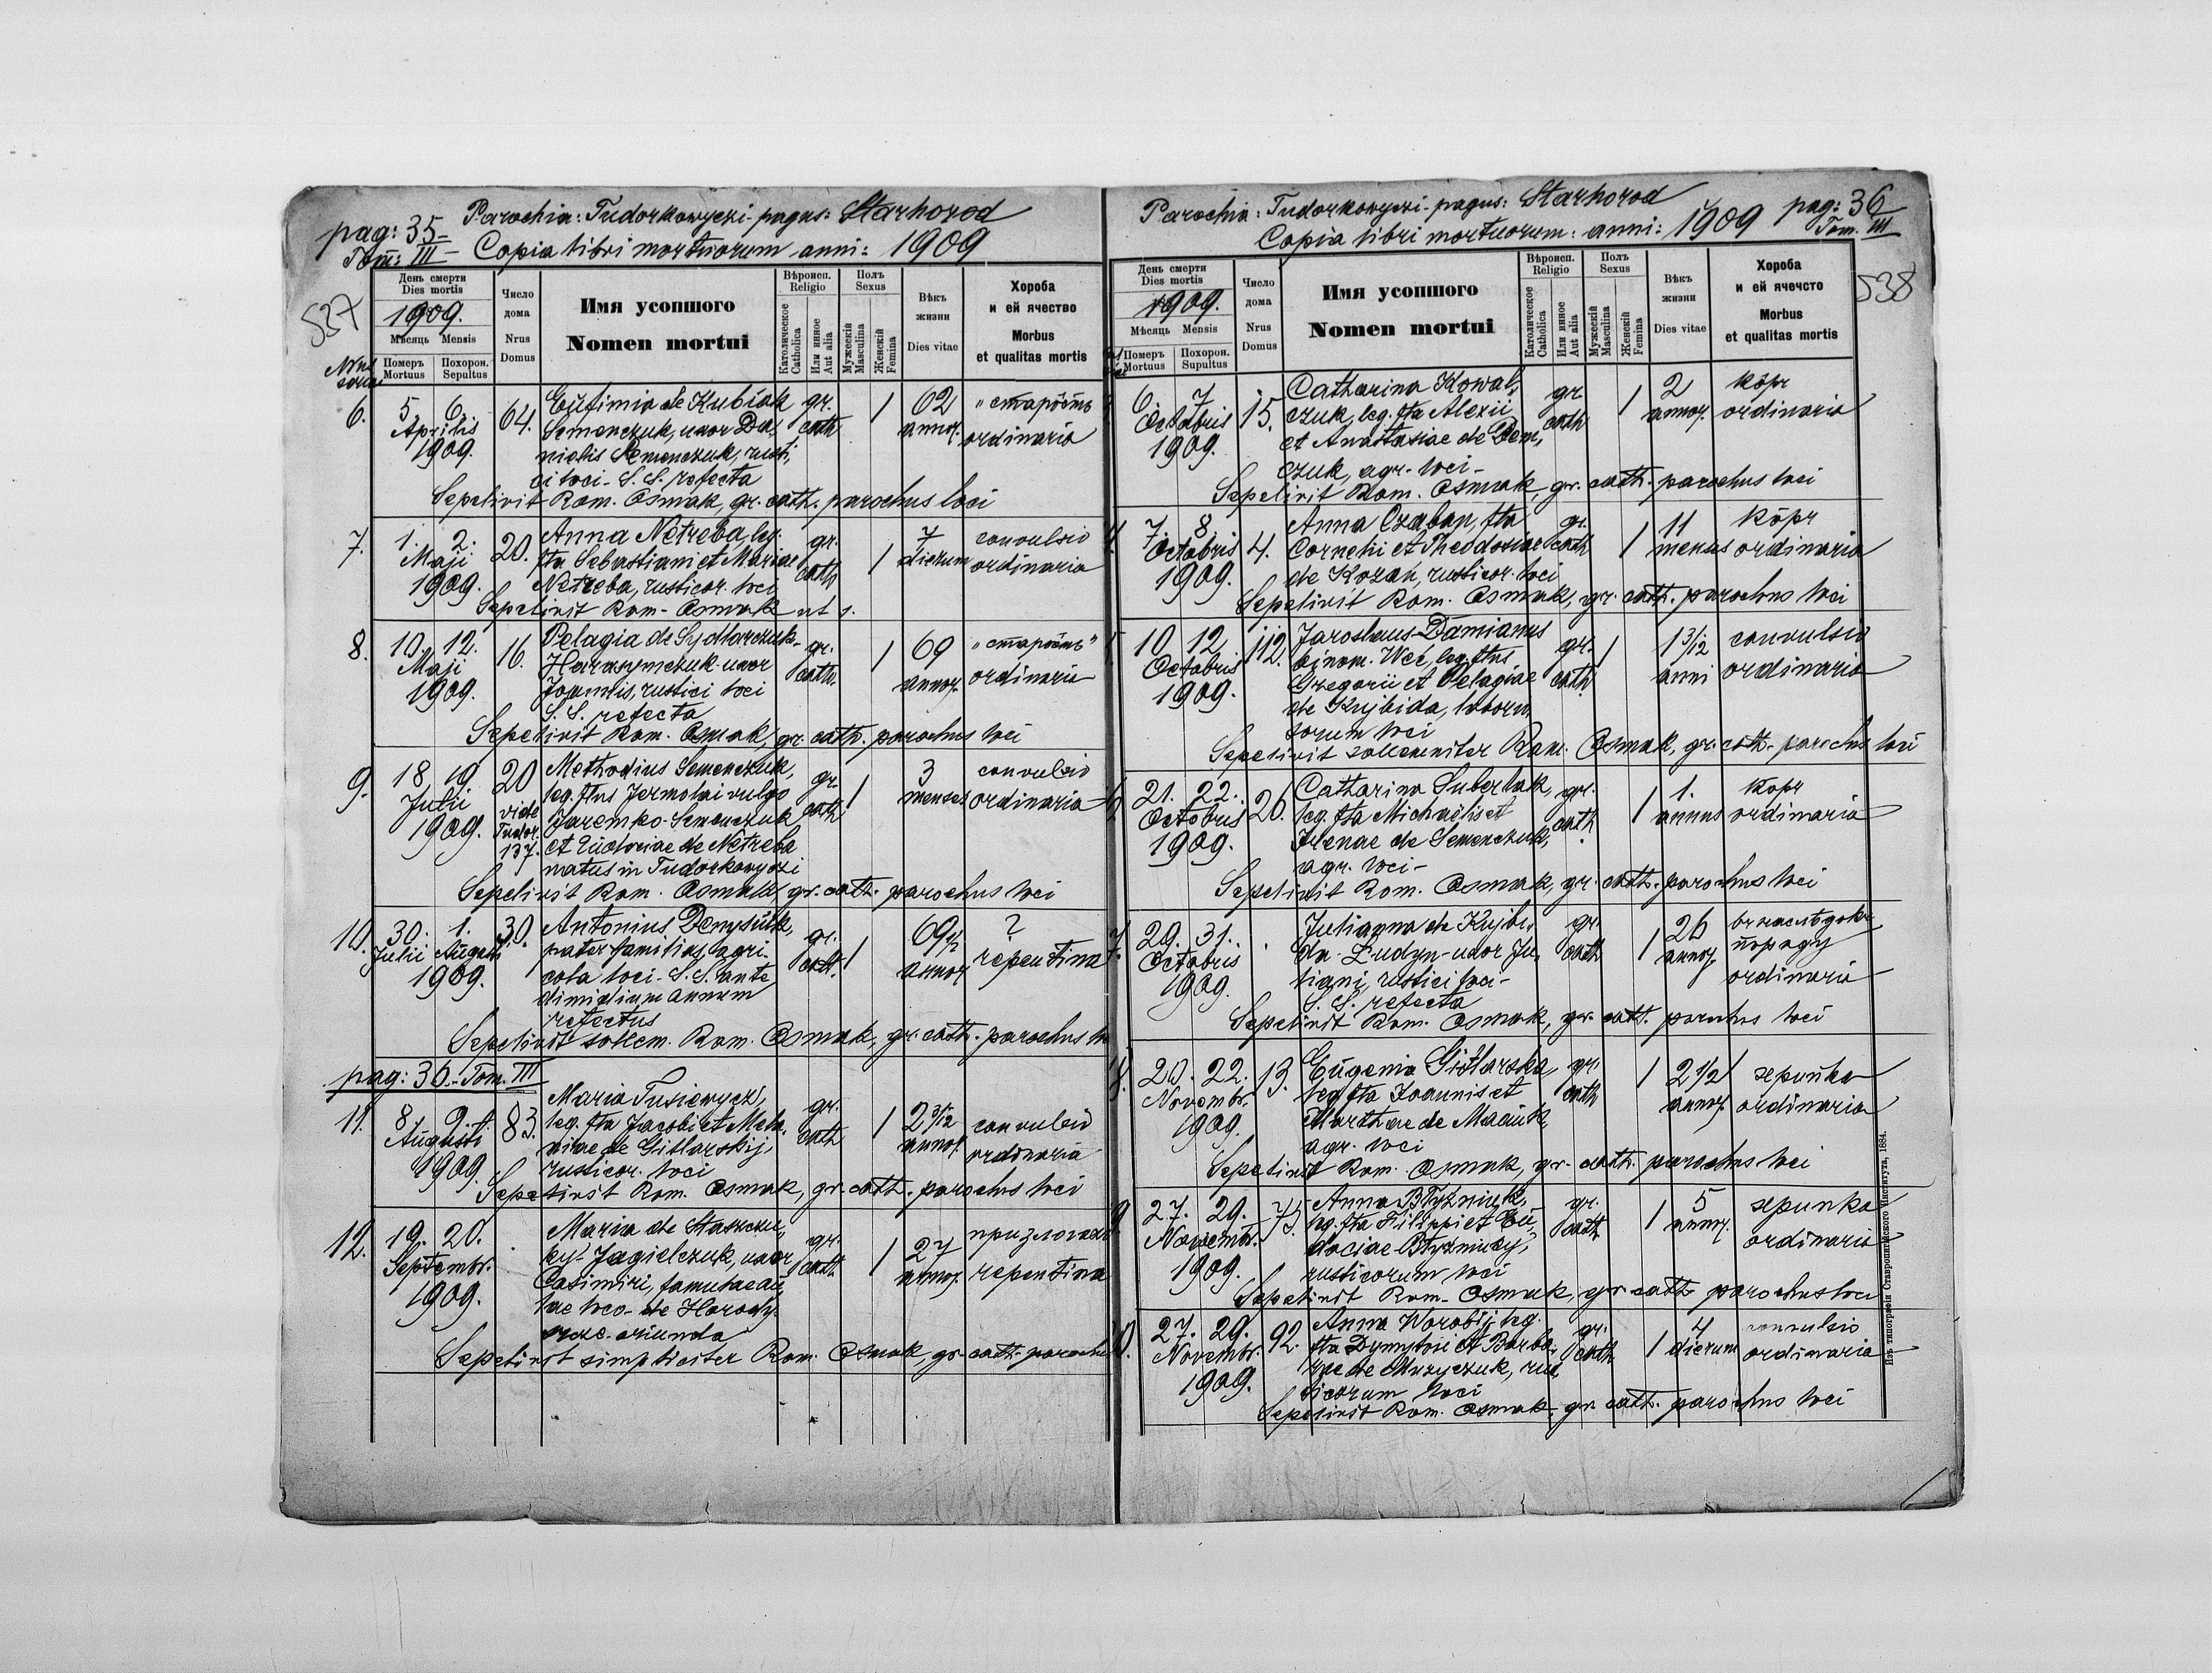 pag: 35 Parochia: Tudorkowyczi - pagus: Starhorod
Tom: III - Copia libri mortuorum anni: 1909
527
День смерти
Dies mortis
1909.
Мѣсяць Mensis
Померъ Mortuus
Похорон. Sepultus
Число дома
Nrus Domus
Имя усопшого
Nomen mortui
Вѣроисп.
Religio
Католическое Catholica
Или инное Aut alia
Полъ
Sexus
Мужескій Masculina
Женскій Femina
Вѣкъ жизни
Dies vitae
Хороба
и ей ячество
Morbus
et qualitas mortis
6. 5. 6. 64. Eufimia de Kubiak gr. 1 62 "старость"
Aprilis Semenczuk, uxor Da- cath annor. ordinaria
1909. nielis Semenczuk, rusti-
ci loci - S. S. refecta
Sepelivit Rom. Osmak, gr. cath. parochus loci
7. 1. 2. 20. Anna Netreba, leg. gr. 1 7 convulsio
Maji fta Sebastiani et Mariae cath dierum ordinaria
1909. Netreba, rusticor. loci
Sepelivit Rom - Osmak ut s.
8. 10. 12. 16. Pelagia de Sydlarczuk - gr. 1 69 "старость"
Maji Harasymczuk uxor cath. annor. ordinaria
1909. Joannis, rustici loci
S. S. refecta
Sepelivit Rom. Osmak, gr. cath. parochus loci
9. 18 19 20 Methodius Semenczuk, gr. 1 3 convulsio
Julii vide leg. ftus Jermolai vulgo cath menses ordinaria
1909. Tudor. Jaremko - Semenczuk
137. et Eudociae de Netreba
natus in Tudorkowyczi
Sepelivit Rom. Osmak, gr. cath. parochus loci
10. 30. 1. 30. Antonius Demysiuk, gr. 1 69 1/2 ?
Julii Augusti pater familias, agri- cath. annor. repentina
1909. cola loci - S. S. ante
dimidium annum
refectus
Sepelivit sollem. Rom. Osmak, gr. cath. parochus
pag: 36 - Tom. III
11. 8. 9. 83. Maria Tusiewycz, gr. 1 2 3/12 convulsio
Augusti leg. fta Jacobi et Mela- cath annor. ordinaria
1909. niae de Gitlarskij,
rusticor. loci
Sepelivit Rom. Osmak, gr. cath. parochus loci
12. 19. 20. Maria de gr. 1 27
Septembr. Jagielczuk, uxor cath annor. repentina
1909. Casimiri, famulae au-
lae loco - de
oriunda
Sepelivit simpliciter Rom. Osmak, gr. cath. parochus
Parochia: Tudorkowyczi - pagus: Starhorod pag: 36
Copia libri mortuorum: anni: 1909 Tom. III
538
День смерти
Dies mortis
1909.
Мѣсяць Mensis
Померъ Mortuus
Похорон. Supultus
Число дома
Nrus Domus
Имя усопшого
Nomen mortui
Вѣроисп.
Religio
Католическое Catholica
Или инное Aut alia
Полъ
Sexus
Мужескій Masculina
Женскій Femina
Вѣкъ жизни
Dies vitae
Хороба
и ей ячечсто
Morbus
et qualitas mortis
6. 7 15. Catharina Kowal- gr. 1 2 кôръ
Octobris czuk, leg. fta Alexii cath annor. ordinaria
1909. et Anastasiae de Dem-
czuk, agr. loci -
Sepelivit Rom. Osmak, gr. cath. parochus loci
7. 8. 4. Anna Czaban, fta gr. 1 11 кôръ
Octobris Cornelii et Theodosiae cath menses ordinaria
1909. de Kozak, rusticor. loci
Sepelivit Rom. Osmak, gr. cath. parochus loci
10 12 112. Jaroslaus - Damianus gr. 1 1 3/12 convulsio
Octobris binom. Weć, leg. ftus cath anni ordinaria
1909. Gregorii et Pelagiae
de Kujbida, labora-
torum loci
Sepelivit sollemniter Rom. Osmak, gr. cath. parochus loci
21. 22. 20. Catharina Suberlak, gr. 1 1. кôръ
Octobris leg. fta Michaëlis et cath. annus ordinaria
1909. Irenae de Semenczuk,
agr. loci -
Sepelivit Rom. Osmak, gr. cath. parochus loci
29. 31. Julianna de Kujbi- gr. 1 26 въ наслѣдокъ
Octobris da - Ludyn - uxor Ju- cath annor. породу
1909. liani, rustici loci - ordinaria
S. S. refecta
Sepelivit Rom. Osmak, gr. cath. parochus loci
20. 22. 13. Eugenia Gitlarska gr. 1 2 1/2
Novembr. leg. fta Joannis et cath annor. ordinaria
1909. Marthae de Maciuk,
agr. loci
Sepelivit Rom. Osmak, gr. cath. parochus loci
27. 29. 75. Anna Błyźniuk, gr. 1 5
Novembr. leg. fta Filippi et Eu- cath annor. ordinaria
1909. dociae
rusticorum loci
Sepelivit Rom - Osmak, gr. cath. parochus loci
27. 29. 92. Anna Worobij, leg. gr. 1 4 convulsio
Novembr. fta Dymytrii et Barba- cath dierum ordinaria
1909. rae de Muzyczuk, rus-
ticorum loci
Sepelivit Rom. Osmak, gr. cath. parochus loci
Изъ типографіи Ставропигійского Института, 1884.